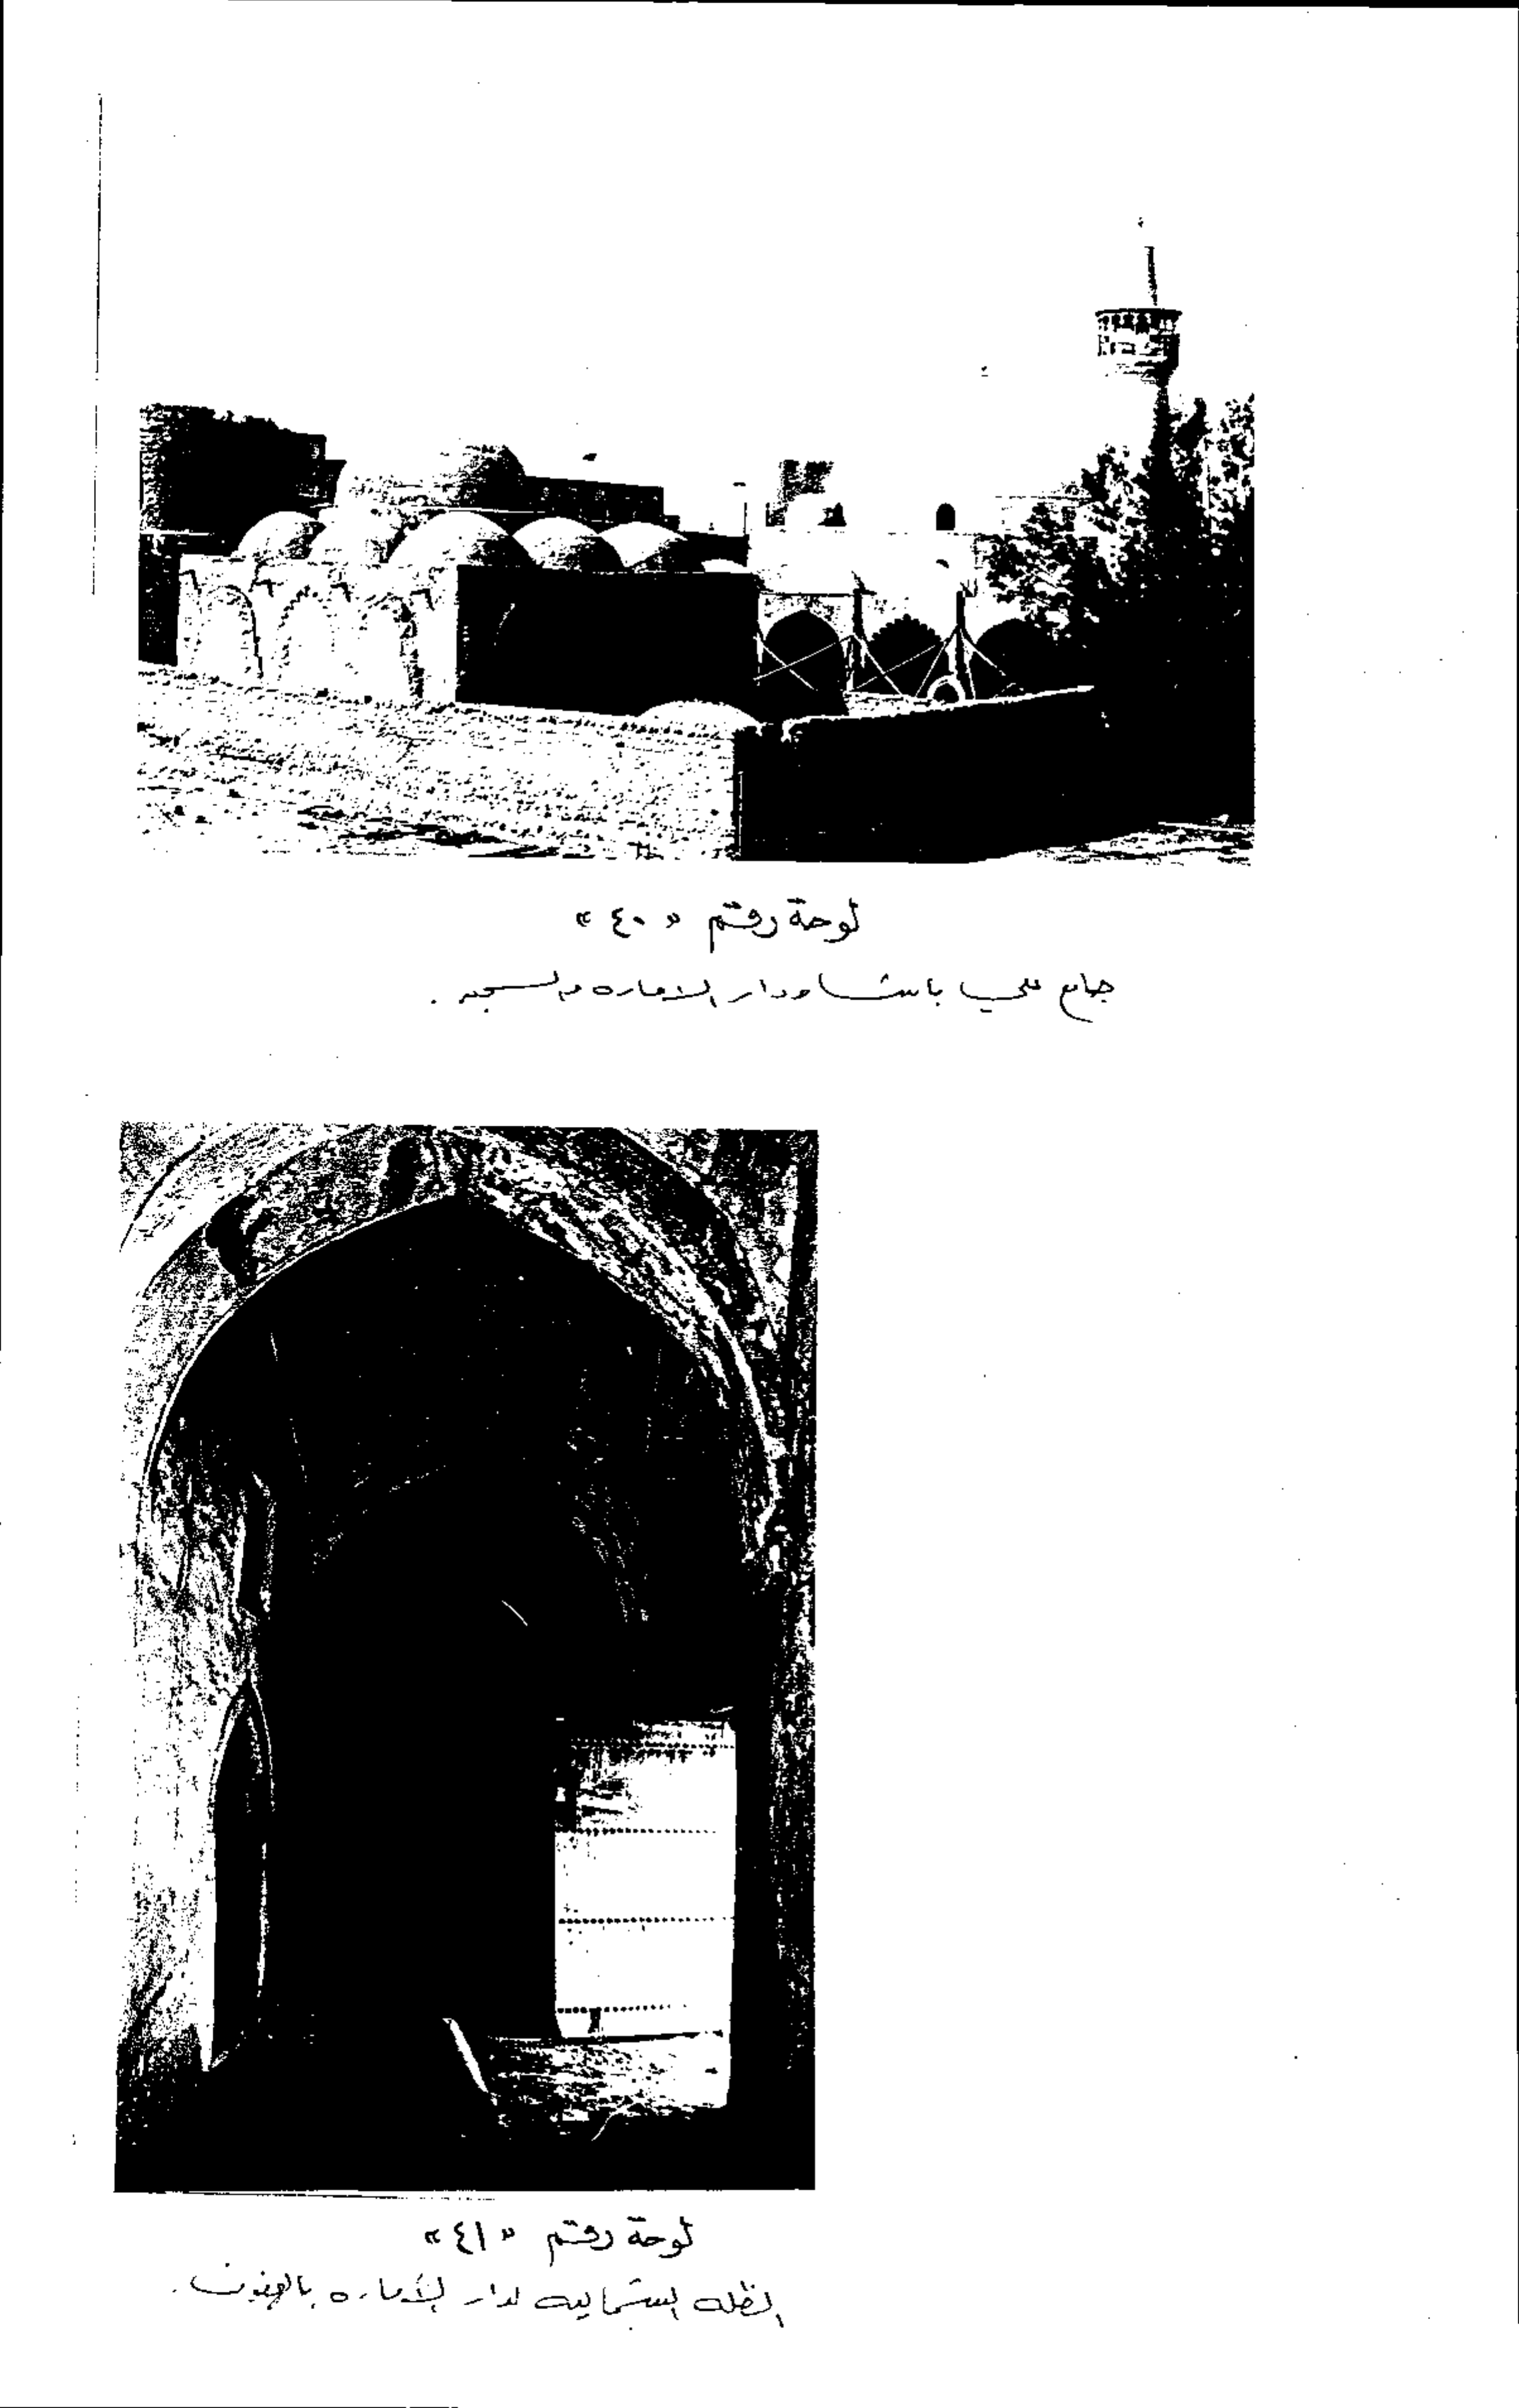 لوحة رقم « ٤٠ »
جامع علي باشا ودار الاماره والسجن .
لوحة رقم « ٤١ »
الظله الشماليه لدار الأماره بالهفوف .